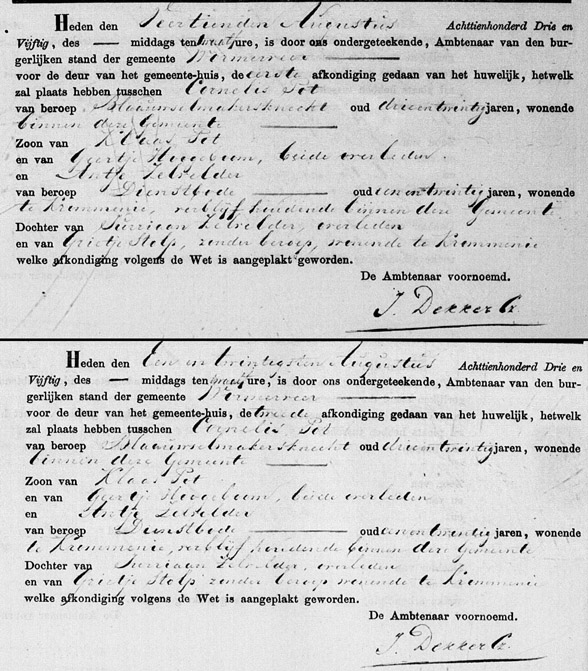 Heden den Veertienden Augustus Achttienhonderd Drie en
Vijftig, des — middags ten twaalf ure, is door ons ondergeteekende, Ambtenaar van den bur-
gerlijken stand der gemeente Wormerveer
voor de deur van het gemeente-huis, de eerste afkondiging gedaan van het huwelijk, hetwelk
zal plaats hebben tusschen Cornelis Pot
van beroep Blaauwselmakersknecht oud drieentwintig jaren, wonende
binnen deze Gemeente
Zoon van Klaas Pot
en van Geertje Hoogeboom, beide overleden.
en Antje Zelvelder
van beroep Dienstbode oud een en twintig jaren, wonende
te Krommenie, verblijf houdende binnen deze Gemeente
Dochter van Jurriaan Zelvelder, overleden
en van Grietje Stolp, zonder beroep, wonende te Krommenie
welke afkondiging volgens de Wet is aangeplakt geworden.
De Ambtenaar voornoemd.
J. Dekker Cz.
Heden den Een en twintigsten Augustus Achttienhonderd Drie en
Vijftig, des — middags ten twaalf ure, is door ons ondergeteekende, Ambtenaar van den bur-
gerlijken stand der gemeente Wormerveer
voor de deur van het gemeente-huis, de tweede afkondiging gedaan van het huwelijk, hetwelk
zal plaats hebben tusschen Cornelis Pot
van beroep Blaauwselmakersknecht oud drieentwintig jaren, wonende
binnen deze Gemeente
Zoon van Klaas Pot
en van Geertje Hoogeboom, beide overleden
en Antje Zelvelder
van beroep Dienstbode oud een en twintig jaren, wonende
te Krommenie, verblijf houdende binnen deze Gemeente
Dochter van Jurriaan Zelvelder, overleden
en van Grietje Stolp zonder beroep wonende te Krommenie
welke afkondiging volgens de Wet is aangeplakt geworden.
De Ambtenaar voornoemd.
J. Dekker Cz.